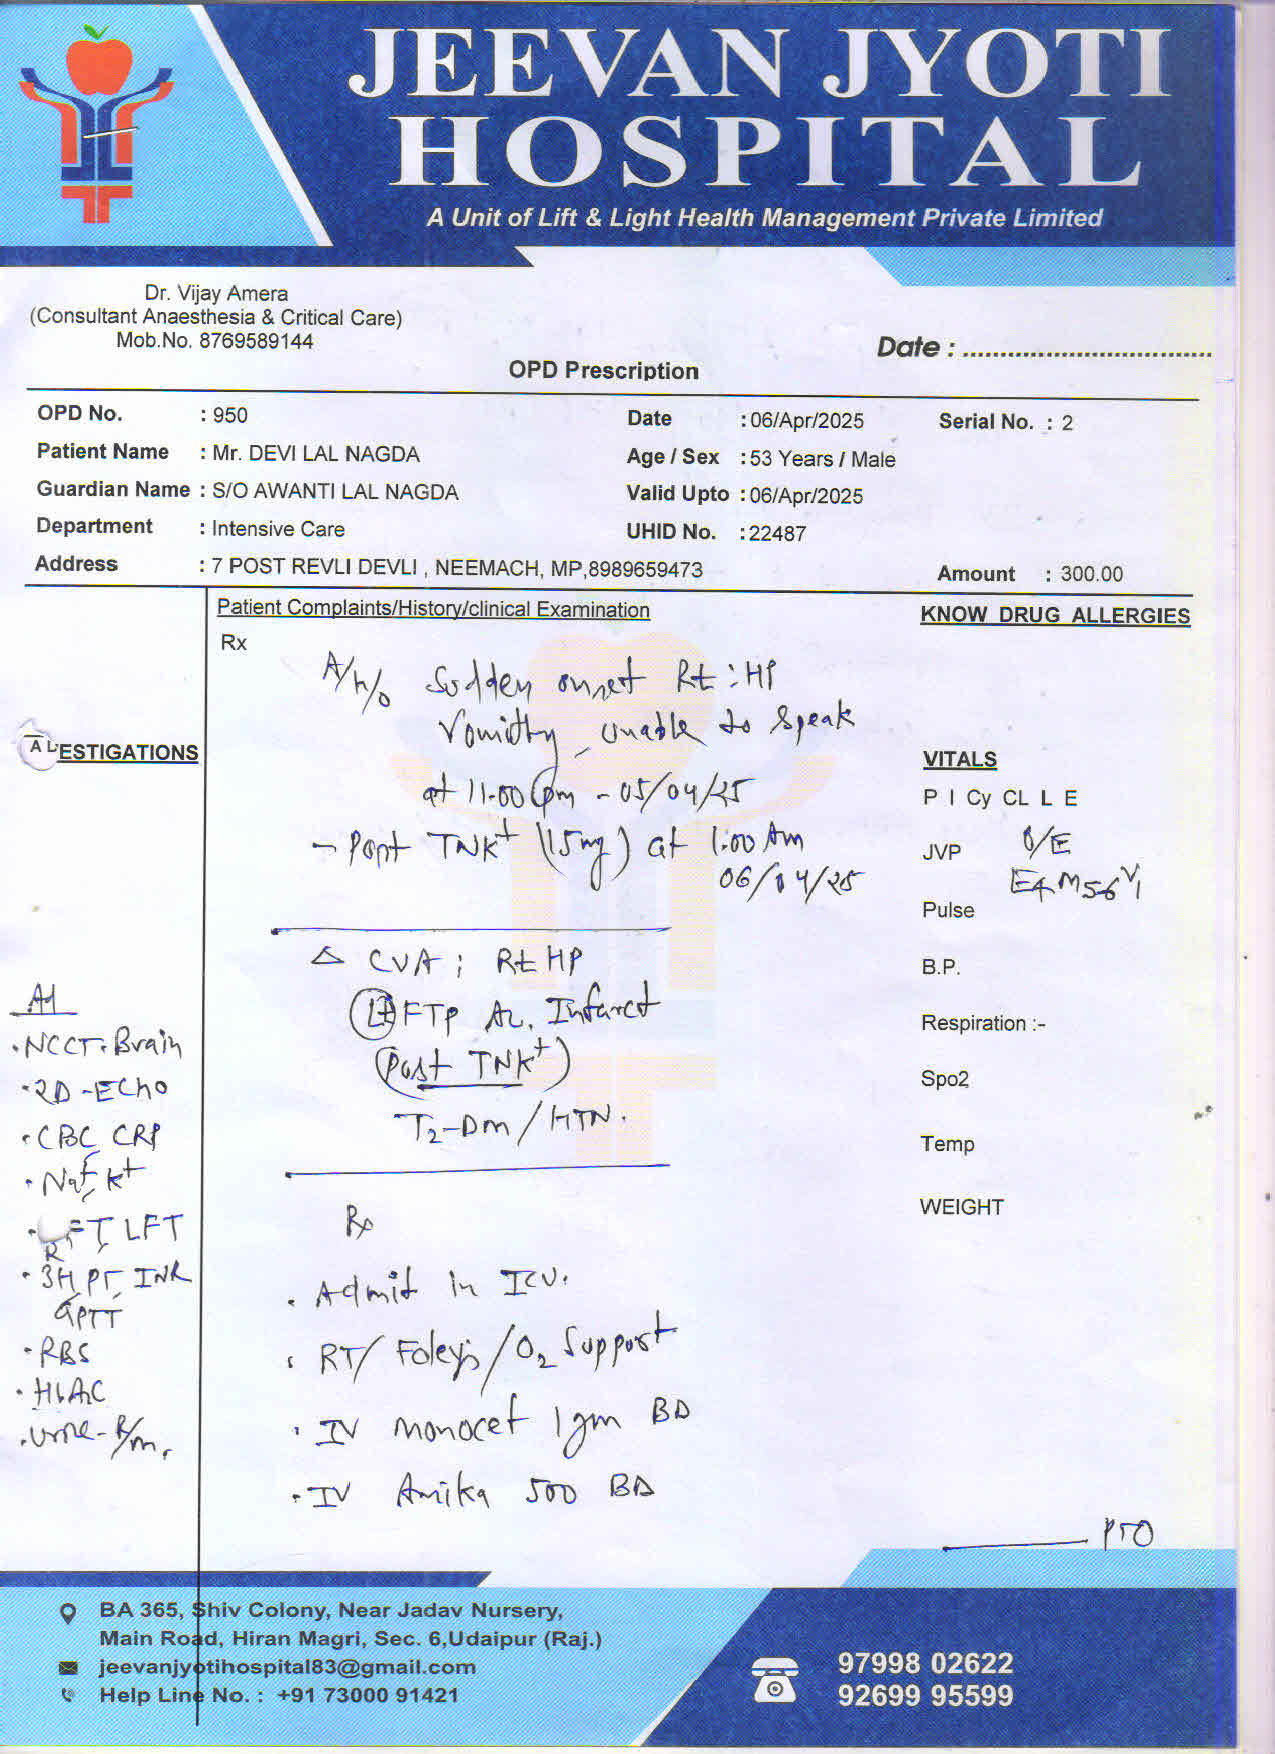 JEEVAN JYOTI
HOSPITAL
A Unit of Lift & Light Health Management Private Limited
Dr. Vijay Amera
(Consultant Anaesthesia & Critical Care)
Mob.No. 8769589144
Date : ................................
OPD Prescription
OPD No. : 950 Date : 06/Apr/2025 Serial No. : 2
Patient Name : Mr. DEVI LAL NAGDA Age / Sex : 53 Years / Male
Guardian Name : S/O AWANTI LAL NAGDA Valid Upto : 06/Apr/2025
Department : Intensive Care UHID No. : 22487
Address : 7 POST REVLI DEVLI , NEEMACH, MP,8989659473 Amount : 300.00
Patient Complaints/History/clinical Examination
Rx
A/h/o Sudden onset Rt : HP
Vomitty, unable to speak
at 11.00 pm - 05/04/25
- Post TNK+ (15mg) at 1:00 Am
06/04/25
Δ CVA ; Rt HP
Lt FTP Ac. Infarct
(Post TNK+)
T2-Dm / HTN.
Rx
. Admit in ICU.
. RT/ Foley's / O2 Support
. IV monocef 1gm BD
. IV Amika 500 BD
ESTIGATIONS
Ad
. NCCT. Brain
. 2D-ECho
. CBC CRP
. Na+, K+
. RFT, LFT
. 3H, PT, INR
aPTT
. RBS
. HbA1C
. Urine - R/m.
KNOW DRUG ALLERGIES
VITALS
P I Cy CL L E
JVP O/E
E4 M5-6 V1
Pulse
B.P.
Respiration :-
Spo2
Temp
WEIGHT
PTO
BA 365, Shiv Colony, Near Jadav Nursery,
Main Road, Hiran Magri, Sec. 6,Udaipur (Raj.)
jeevanjyotihospital83@gmail.com
Help Line No. : +91 73000 91421
97998 02622
92699 95599